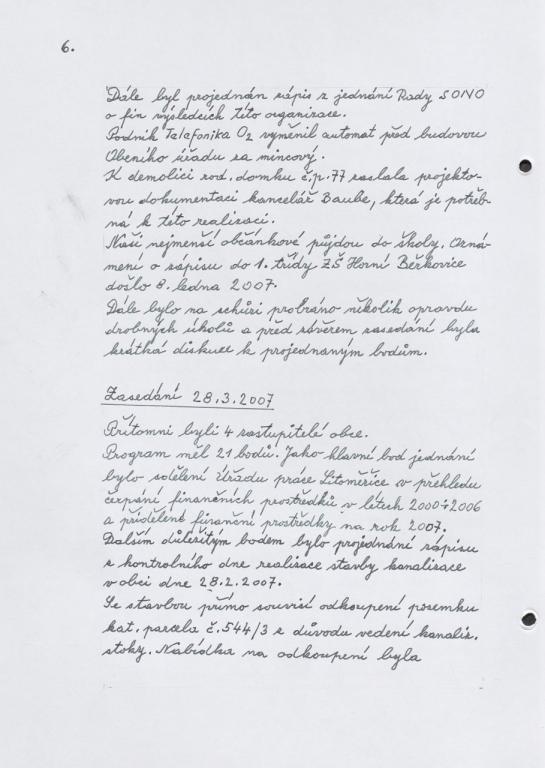 6.
Dále byl projednán zápis z jednání Rady SONO
o fin výsledcích této organizace.
Podnik Telefonika O2 vyměnil automat před budovou
Obecního úřadu za mincový.
K demolici rod. domku č.p. 77 zaslala projekto-
vou dokumentaci kancelář Baube, která je potřeb-
ná k této realizaci.
Naši nejmenší občánkové půjdou do školy. Ozná-
mení o zápisu do 1. třídy ZŠ Horní Beřkovice
došlo 8. ledna 2007.
Dále bylo na schůzi probráno několik opravdu
drobných úkolů a před závěrem zasedání byla
krátká diskuse k projednaným bodům.
Zasedání 28.3.2007
Přítomni byli 4 zastupitelé obce.
Program měl 21 bodů. Jako hlavní bod jednání
bylo sdělení Úřadu práce Litoměřice v přehledu
čerpání finančních prostředků v létech 2000÷2006
a přidělené finanční prostředky na rok 2007.
Dalším důležitým bodem bylo projednání zápisu
z kontrolního dne realizace stavby kanalizace
v obci dne 28.2.2007.
Se stavbou přímo souvisí odkoupení pozemku
kat. parcela č. 544/3 z důvodu vedení kanaliz.
stoky. Nabídka na odkoupení byla